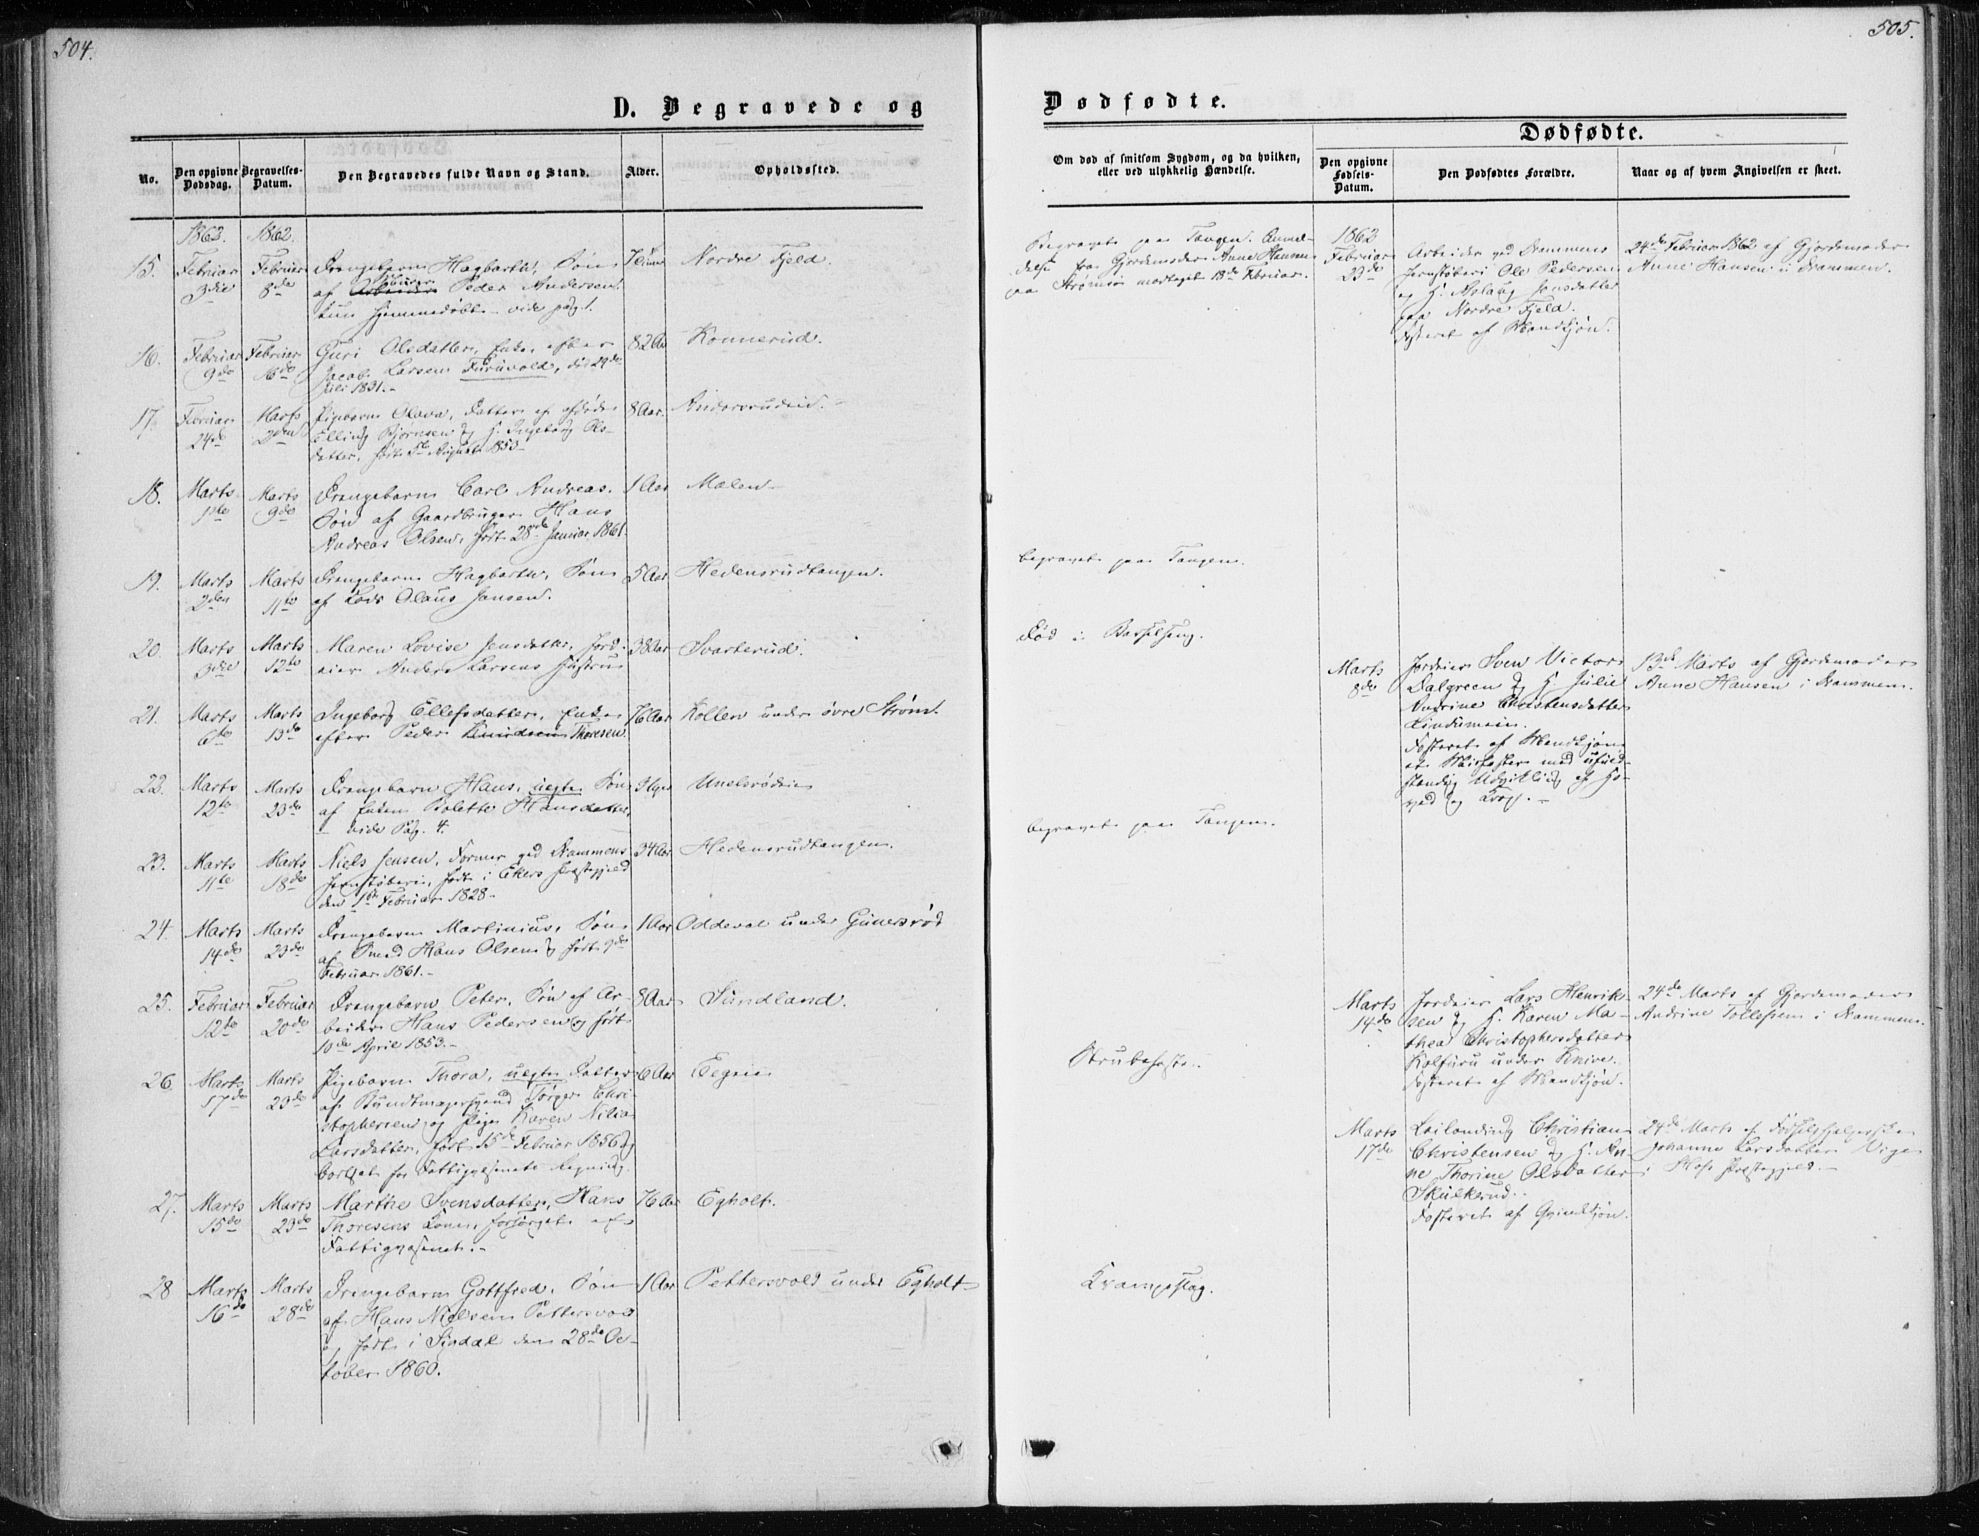 504.
D. Begravede og
No.
Den opgivne Dødsdag.
Begravelses-Datum.
Den Begravedes fulde Navn og Stand.
Alder.
Opholdssted.
1862. 1862.
15. Februar Februar Drengebarn Hagbarth, Søn Nordre Fjeld.
3die 8de af Arbeider Peder Andersen.
kun hjemmedøbt - vide pag. 1.
16. Februar Februar Guri Olsdatter, Enke efter 82 Aar Konnerud.
9de 16de Jacob Larsen Furuvold, død 29de
Juli 1831.-
17. Februar Marts Pigebarn Olava, Datter af afdøde 8 Aar.
24de 2den Elling Bjørnsen og H. Ingeborg Ols-
datter, født 5te August 1853
18. Marts Marts Drengebarn Carl Andreas, 1 Aar Malen
1ste 9de Søn af Gaardbruger Hans
Andreas Olsen, født 28de Januar 1861.
19. Marts Marts Drengebarn Hagbarth, Søn 5 Aar Hedensrudtangen.
2den 11te af Lods Olaus Jansen.
20. Marts Marts Maren Lovise Jensdatter, Jord- 38 Aar Svarterud.
3die 12te eier Anders Larsens Hustru
21. Marts Marts Ingeborg Ellefsdatter, Enke 76 Aar Kollen under övre Strömt.
6te 13de efter Peder Knudsen Thoresen.
22. Marts Marts Drengebarn Hans, uegte Søn
12te 23de af Enken Bolette Hansdatter,
- vide Pag. 4.
23. Marts Marts Niels Jensen, Former ved Drammens 34 Aar Hedensrudtangen.
11te 18de Jernstøberi, født i Ekers Præstegjeld
den 1ste Februar 1828.-
24. Marts Marts Drengebarn Martinius, Søn 1 Aar Oddeval under Gunersrød
14de 23de af Smed Hans Olsen, født 9de
Februar 1861.-
25. Februar Februar Drengebarn Peter, Søn af Ar- 8 Aar Sundland.
12te 20de beider Hans Pedersen, født
10de April 1853.-
26. Marts Marts Pigebarn Thora, uegte Datter 6 Aar
17de 23de af Bundtmagersvend Törger Chri-
stophersen og Pige Karen Nilia
Larsdatter, født 15de Februar 1856 og
bortsat for Fattigvæsenets Regning.
27. Marts Marts Marthe Svensdatter, Hans 76 Aar Egholt.
15de 23de Thoresens Kone, forsørget af
Fattigvæsenet.-
28 Marts Marts Drengebarn Gottfred, Søn 1 Aar Pettersvold under Egholt
16de 28de af Hans Nielsen Pettersvold
og født i Sjødal den 28de Oc-
tober 1860.
505.
Dødfødte.
Om død af smitsom Sygdom, og da hvilken,
eller ved ulykkelig Hændelse.
Dødfødte.
Den opgivne Fødsels-Datum.
Den Dødfødtes Forældre.
Naar og af hvem Angivelsen er skeet.
Begravet paa Tangen. Anmel-
delse fra Gjordemoder Anne Hansen
paa Strømsø modtaget 13de Februar.
begravet paa Tangen.
død i Barselseng.
begravet paa Tangen.
Strubehoste.
Krampeslag.
1862
Februar
23de
Arbeider ved Drammens
Jernstøberi Ole Pedersen
og H. Aslaug Jensdatter
paa Nordre Fjeld.
Fosteret af Mandkjøn.
24de Februar 1862 af Gjordemoder
Anne Hansen i Drammen.
Marts
8de
Jordeier Sven Victor
Dalgreen og H. Julie
Andrine Christensdatter
Fosteret af Mandkjøn
et med ufuld-
stændig Udvikling af Ho-
ved og
13de Marts af Gjordemoder
Anne Hansen i Drammen.
Marts
14de
Jordeier Lars Henrik-
sen og H. Karen Ma-
thea Christophersdatter
Kolfuru under Knive.
Fosteret af Mandkjøn.
24de Marts af Gjordemoder
Andrine Tollefsen i Drammen.
Marts
17de
Leilending Christian
Christensen og H. An-
ne Thorine Olsdatter
Skulkerud.
Fosteret af Qvindkjøn.
24de Marts af Fødselshjelperske
Johanne Larsdatter
i Hofs Præstegjeld.